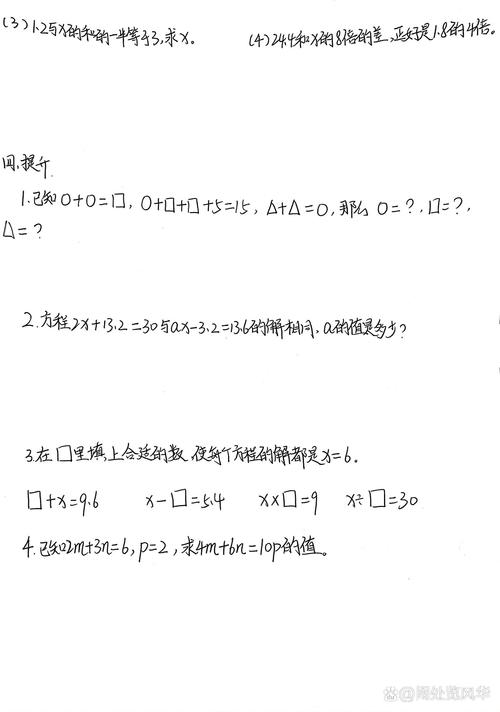 (3) 1.2与x的和的一半等于3,求x。 (4) 24.4和x的8倍的差,正好是1.8的4倍。
四、提升
1.已知○+○=□, ○+□+□+5=15, △+△=○, 那么 ○=?, □=?,
△=?
2.方程2x+13.2=30与ax-3.2=13.6的解相同, a的值是多少?
3.在□里填上合适的数,使每个方程的解都是x=6。
□+x=9.6 x-□=5.4 x×□=9 x÷□=30
4.已知2m+3n=6, p=2, 求4m+6n=10p的值。
@闲处览风华